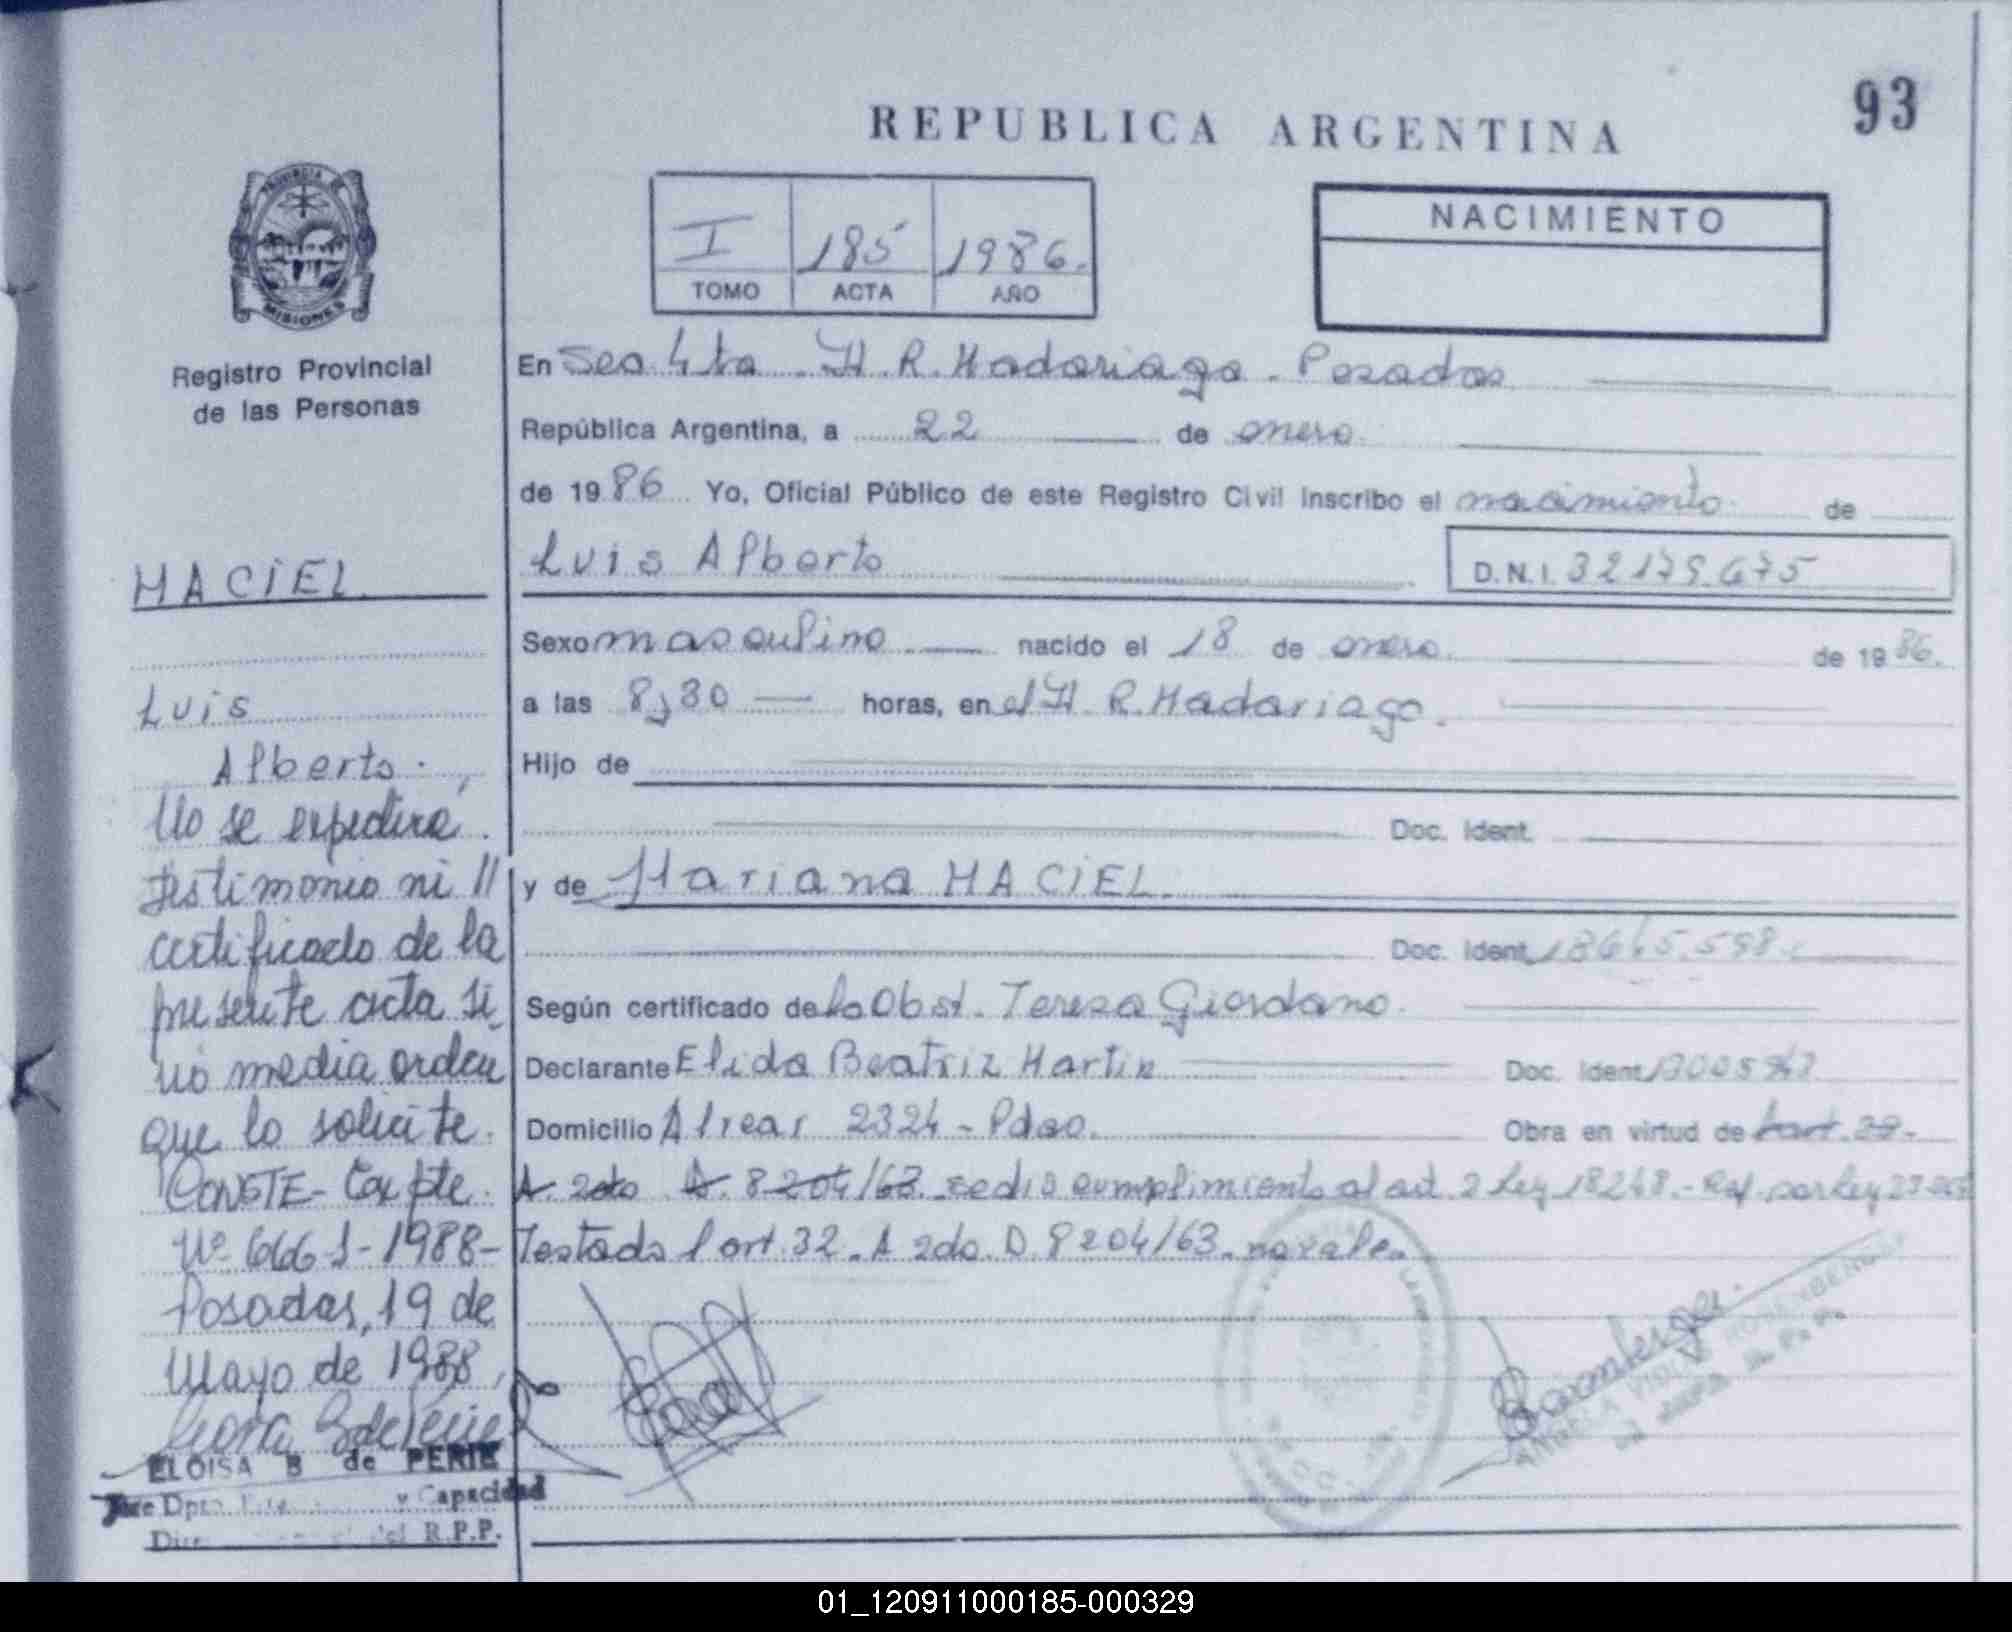 93
REPUBLICA ARGENTINA
PROVINCIA DE
MISIONES
Registro Provincial
de las Personas
I 185 1986.
TOMO ACTA AÑO
NACIMIENTO
En Sec 4ta. H. R. Madariaga. Posadas
República Argentina, a 22 de enero
de 1986 Yo, Oficial Público de este Registro Civil inscribo el nacimiento de
Luis Alberto D.N.I. 32179.675
Sexo masculino nacido el 18 de enero de 1986.
a las 8,30 horas, en el H. R. Madariaga.
Hijo de
Doc. Ident.
y de Mariana MACIEL.
Doc. Ident.
Según certificado de la Obst. Teresa Giordano.
Declarante Elida Beatriz Martin Doc. Ident.
Domicilio Alvear 2324 - Pdas. Obra en virtud de l'art. 32.
A. 2do D. 8204/63. se dió cumplimiento al art. 2 Ley 18248.- Ref. por Ley
Testado l'art. 32. A 2do. D 8204/63. no vale.
MACIEL
Luis
Alberto.
No se expedirá
testimonio ni //
certificado de la
presente acta si
no media orden
que lo solicite.
CONSTE- Expte.
Nº 666-J-1988-
Posadas, 19 de
Mayo de 1988,
ELOISA B de PERIE
Jefe Dpto. y Capacidad
del R.P.P.
01_120911000185-000329